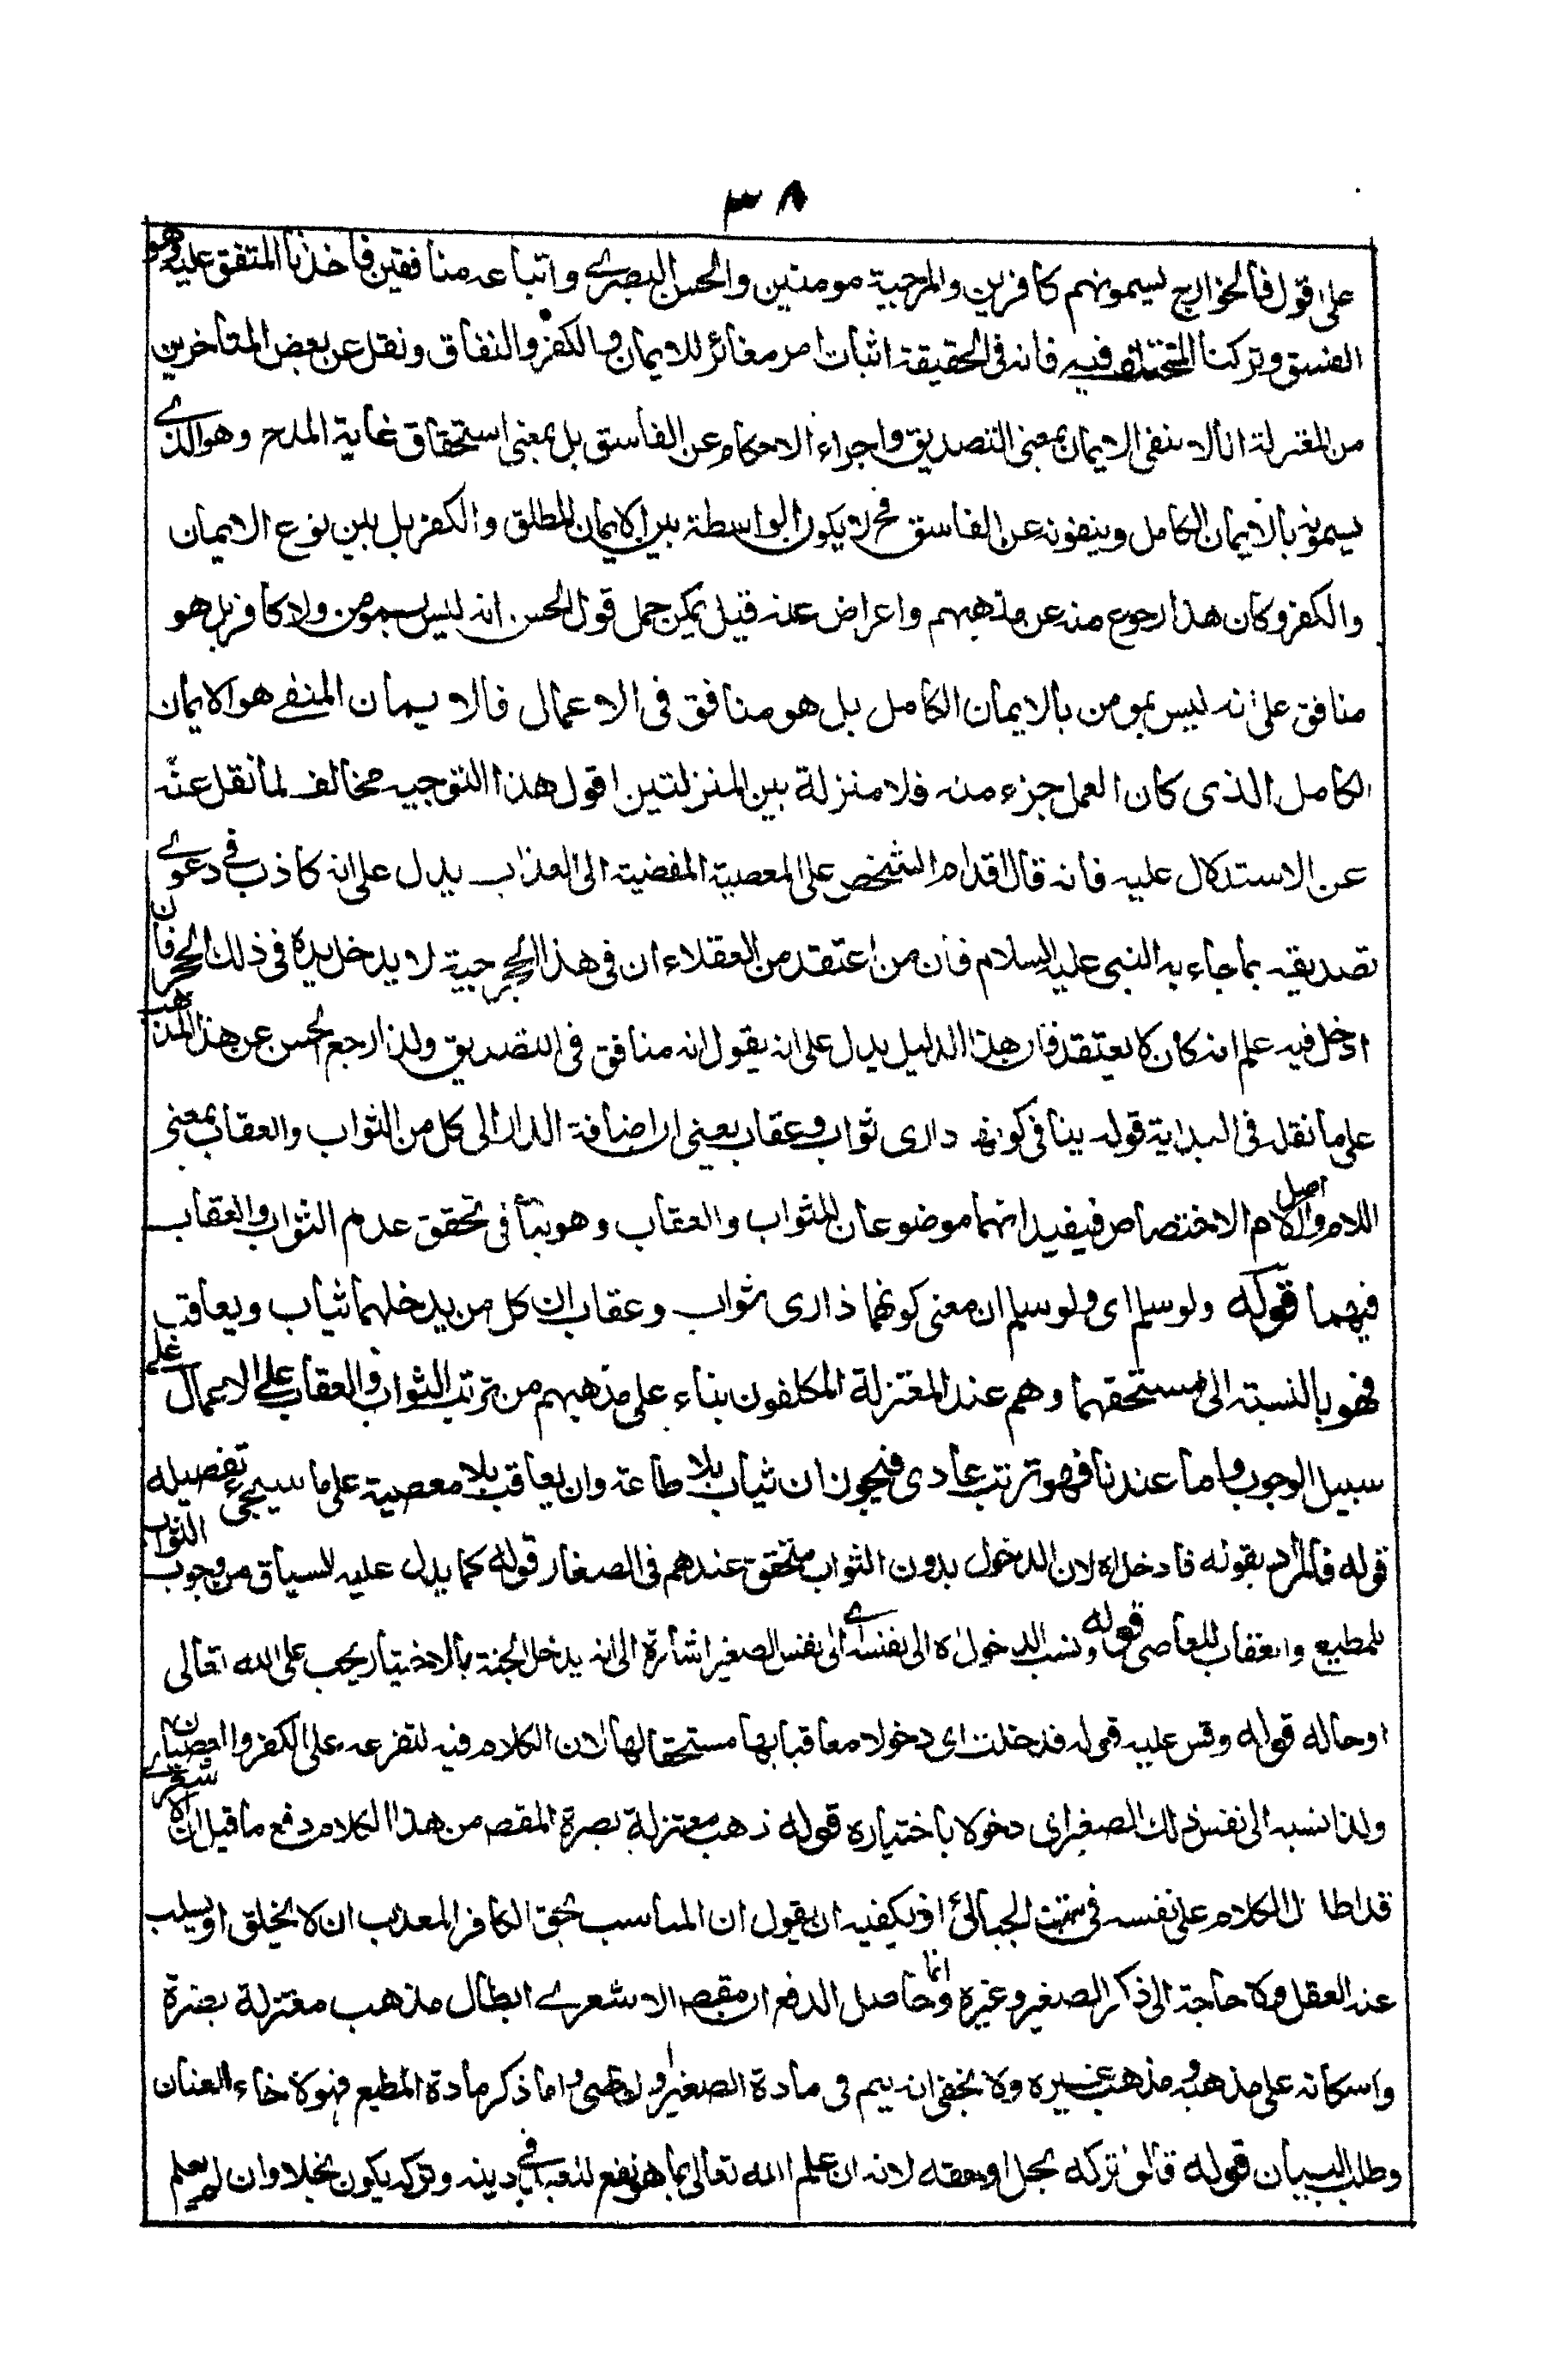 ٣٨
على قول فالخوارج يسمونهم كافرين والمرجية مومنين والحسن البصرے واتباعه منافقين فاخذنا المتفق عليه وهو
الفسق وتركنا المختلف فيه فانه فى الحقيقة اثبات امر مغائر للايمان والكفر والنفاق ونقل عن بعض المتأخرين
من المعتزلة انا لا ننفى الايمان بمعنى التصديق واجراء الاحكام عن الفاسق بل بمعنى استحقاق غاية المدح وهو الذے
يسمونه بالايمان الكامل وينفونه عن الفاسق فح لا يكون الواسطة بين الايمان المطلق والكفر بل بين نوع الايمان
والكفر وكان هذا رجوع منه عن مذهبهم واعراض عنه قيل يمكن حمل قول الحسن انه ليس بمومن ولا كافر بل هو
منافق على انه ليس بمومن بالايمان الكامل بل هو منافق فى الاعمال فالايمان المنفے هو الايمان
الكامل الذى كان العمل جزء منه فلا منزلة بين المنزلتين اقول هذا التوجيه مخالف لما نقل عنه
عن الاستدلال عليه فانه قال اقدام الشخص على المعصية المفضية الى العذاب يدل على انه كاذب فے دعوے
تصديقه بما جاء به النبى عليه السلام فان من اعتقد من العقلاء ان فى هذا الجحر حية لا يدخل يده فى ذلك الجحر فان
ادخل فيه علم انه كان لا يعتقد فان هذا الدليل يدل على انه يقول انه منافق فى التصديق ولذا رجع الحسن عن هذا المذهب
على ما نقل فى البداية قوله ينافى كونهما دارى ثواب وعقاب يعنى ان اضافة الدار الى كل من الثواب والعقاب بمعنى
اللام واصل اللام الاختصاص فيفيد انهما موضوعان للثواب والعقاب وهو ينافى تحقق عدم الثواب والعقاب
فيهما قوله ولو سلم اى ولو سلم ان معنى كونهما دارى ثواب وعقاب ان كل من يدخلهما يثاب ويعاقب
فهو بالنسبة الى مستحقهما وهم عند المعتزلة المكلفون بناء على مذهبهم من ترتب الثواب والعقاب على الاعمال على
سبيل الوجوب واما عندنا فهو ترتب عادى فيجوز ان يثاب بلا طاعة وان يعاقب بلا معصية على ما سيجئ تفصيله
قوله فالمراد بقوله فادخل اه لان الدخول بدون الثواب متحقق عندهم فى الصغار قوله كما يدل عليه السياق من وجوب الثواب
للمطيع والعقاب للعاصى قوله ونسب الدخول اه الى نفسه اے الى نفس الصغير اشارة الى انه يدخل الجنة بالاختيار يجب على الله تعالى
ادخاله قوله وقس عليه قوله فدخلت اى دخولا معاقبا بها مستحقا لها لان الكلام فيه لتفرعه على الكفر والعصيان
ولذا نسبه الى نفس ذلك الصغير اى دخولا باختياره قوله ذهب معتزلة بصرة المقصه من هذا الكلام دفع ما قيل ان الاشعرے
قد اطال الكلام على نفسه فى بهت الجبائى اذ يكفيه ان يقول ان المناسب بحق الكافر المعذب ان لا يخلق او يسلب
عنه العقل ولا حاجة الى ذكر الصغير وغيره وحاصل الدفع ان مقصه الاشعرے انما ابطال مذهب معتزلة بصرة
واسكاته على مذهبه ومذهب غيره ولا يخفى انه يتم فى مادة الصغير او العاصى واما ذكر مادة المطيع فهو لارخاء العنان
وطلب البيان قوله قالوا تركه بخل او سفه لانه ان علم الله تعالى بما هو نفع للعباد فے دينه وتركه يكون بخلا وان لم يعلم